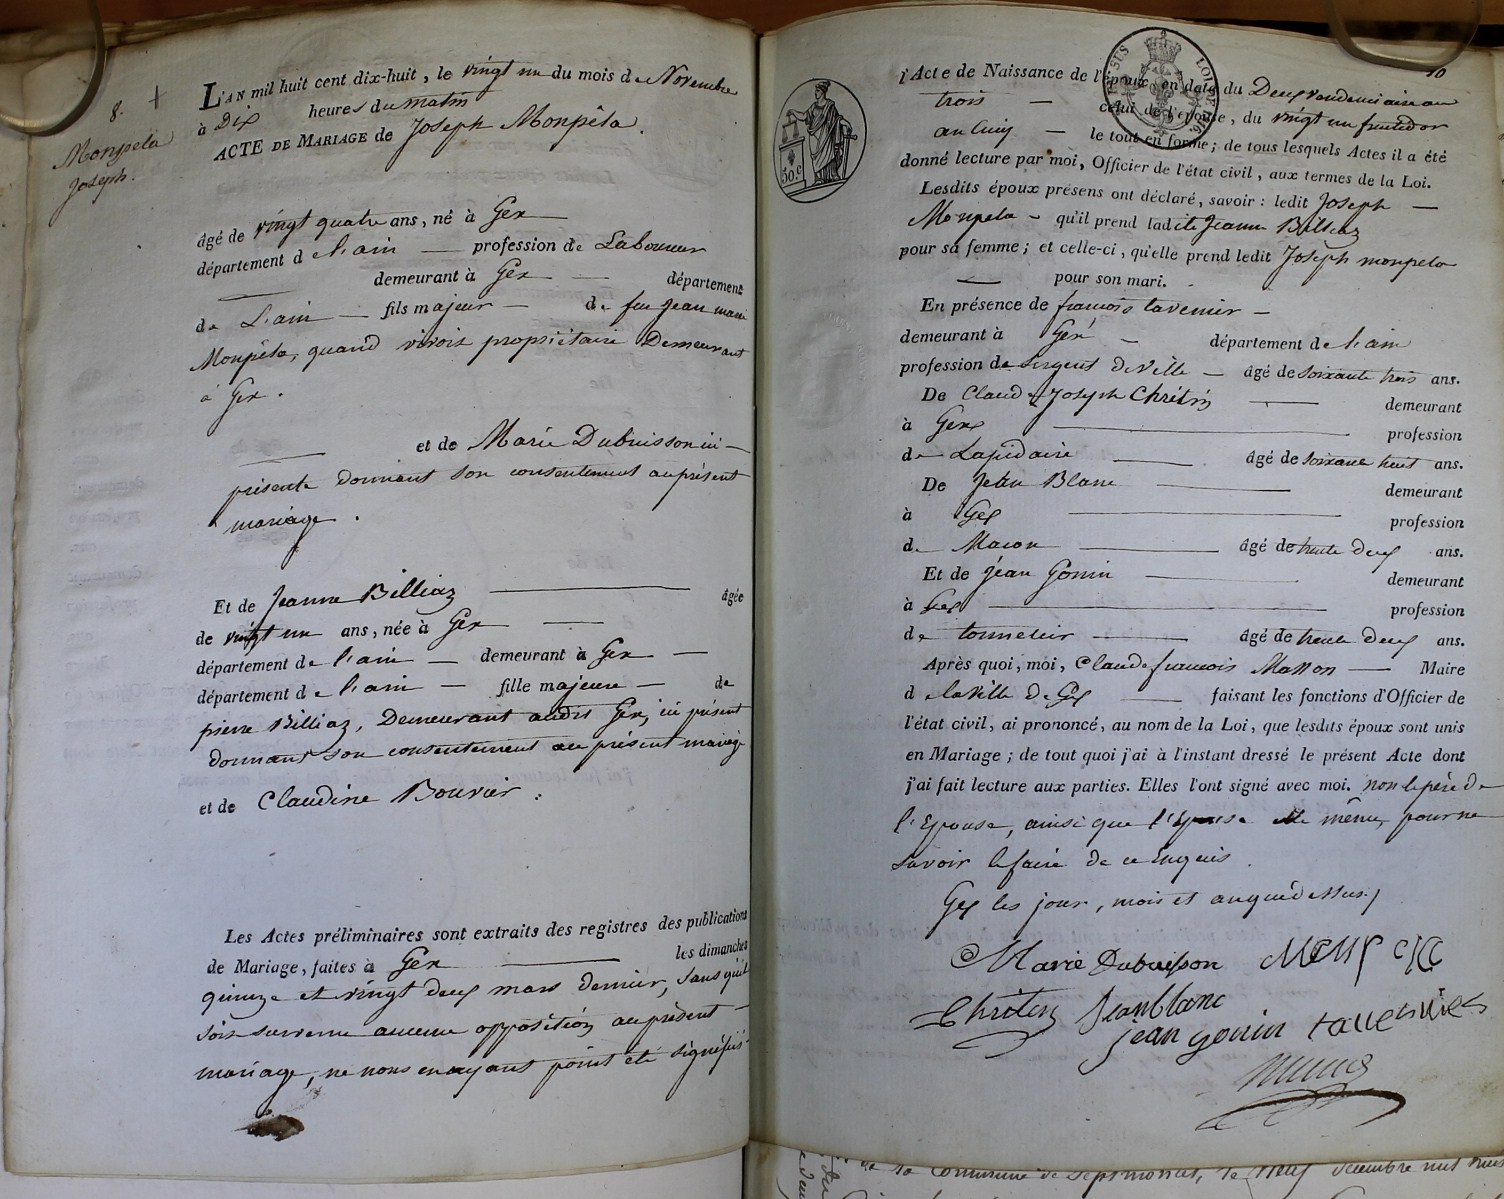 8.
Monpela
Joseph.
L'AN mil huit cent dix-huit, le vingt un du mois de Novembre
à Dix heures du matin
ACTE DE MARIAGE de Joseph Monpêla.
âgé de vingt quatre ans, né à Gex
département de l'ain — profession de Laboureur
demeurant à Gex — département
de L'ain — fils majeur — de feu Jean marie
Monpêla, quand vivoit propriétaire Demeurant
à Gex.
et de Marie Dubuisson ici
présente donnant son consentement au présent
mariage.
Et de Jeanne Billiaz — âgée
de vingt un ans, née à Gex —
département de l'ain — demeurant à Gex —
département de l'ain — fille majeure — de
pierre Billiaz, Demeurant audit Gex, ici présent
donnant son consentement au présent mariage
et de Claudine Bouvier.
Les Actes préliminaires sont extraits des registres des publications
de Mariage, faites à Gex — les dimanches
quinze et vingt deux mars dernier, sans qu'il
soit survenu aucune opposition au présent
mariage, ne nous en ayant point été signifié
10
l'Acte de Naissance de l'époux en date du Deux vendemiaire an
trois — celui de l'épouse, du vingt un fructidor
an cinq — le tout en forme; de tous lesquels Actes il a été
donné lecture par moi, Officier de l'état civil, aux termes de la Loi.
Lesdits époux présens ont déclaré, savoir: ledit Joseph —
Monpela — qu'il prend ladite Jeanne Billiaz
pour sa femme; et celle-ci, qu'elle prend ledit Joseph monpela
— pour son mari.
En présence de francois tavernier —
demeurant à Gex — département de l'ain
profession de Sergent de ville — âgé de soixante trois ans.
De Claude Joseph Chrétin — demeurant
à Gex — profession
de Lapidaire — âgé de soixante huit ans.
De Jean Blanc — demeurant
à Gex — profession
de Macon — âgé de trente deux ans.
Et de jean Gonin — demeurant
à Gex — profession
de tonnelier — âgé de trente deux ans.
Après quoi, moi, Claude francois Masson — Maire
de la ville de Gex — faisant les fonctions d'Officier de
l'état civil, ai prononcé, au nom de la Loi, que lesdits époux sont unis
en Mariage; de tout quoi j'ai à l'instant dressé le présent Acte dont
j'ai fait lecture aux parties. Elles l'ont signé avec moi. non le père de
l'Epouse, ainsi que l'Epouse elle même, pour ne
savoir le faire de ce Enquis.
Gex les jour, mois et an que dessus
Marie Dubuisson
Chrétin Jean blanc
jean gonin tavernier
30.c